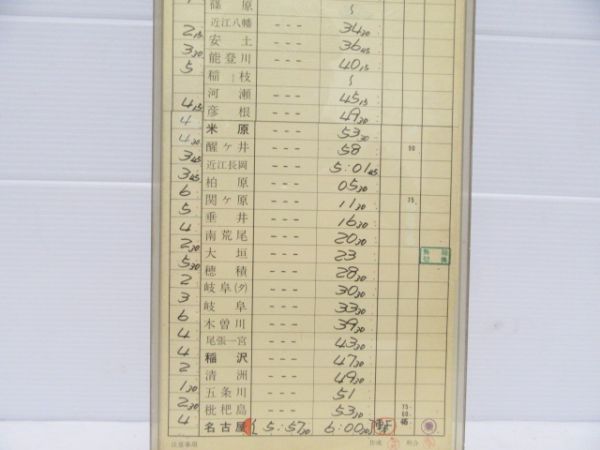 篠原 〜
近江八幡 --- 34 30
2 15 安土 --- 36 45
3 30 能登川 --- 40 15
5 稲枝 〜
河瀬 --- 45 15
4 15 彦根 --- 49 30
4 米原 --- 53 30
4 30 醒ヶ井 --- 58
3 45 近江長岡 --- 5:01 45
3 45 柏原 --- 05 30
6 関ヶ原 --- 11 30
5 垂井 --- 16 30
4 南荒尾 --- 20 30
2 30 大垣 --- 23
5 30 穂積 --- 28 30
2 岐阜(タ) --- 30 30
3 岐阜 --- 33 30
6 木曽川 --- 39 30
4 尾張一宮 --- 43 30
4 稲沢 --- 47 30
2 清洲 --- 49 30
1 30 五条川 --- 51
2 30 枇杷島 --- 53 30
4 名古屋 5:57 30 6:00 30
注意事項